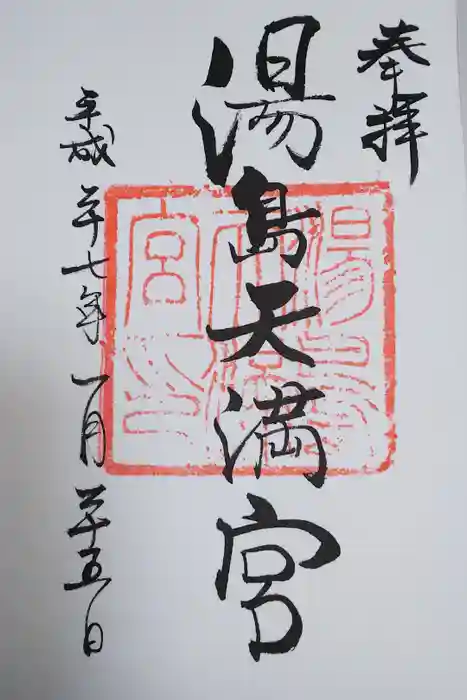 奉拝
湯島天満宮
平成二十七年一月二十五日
湯島
天満
宮印